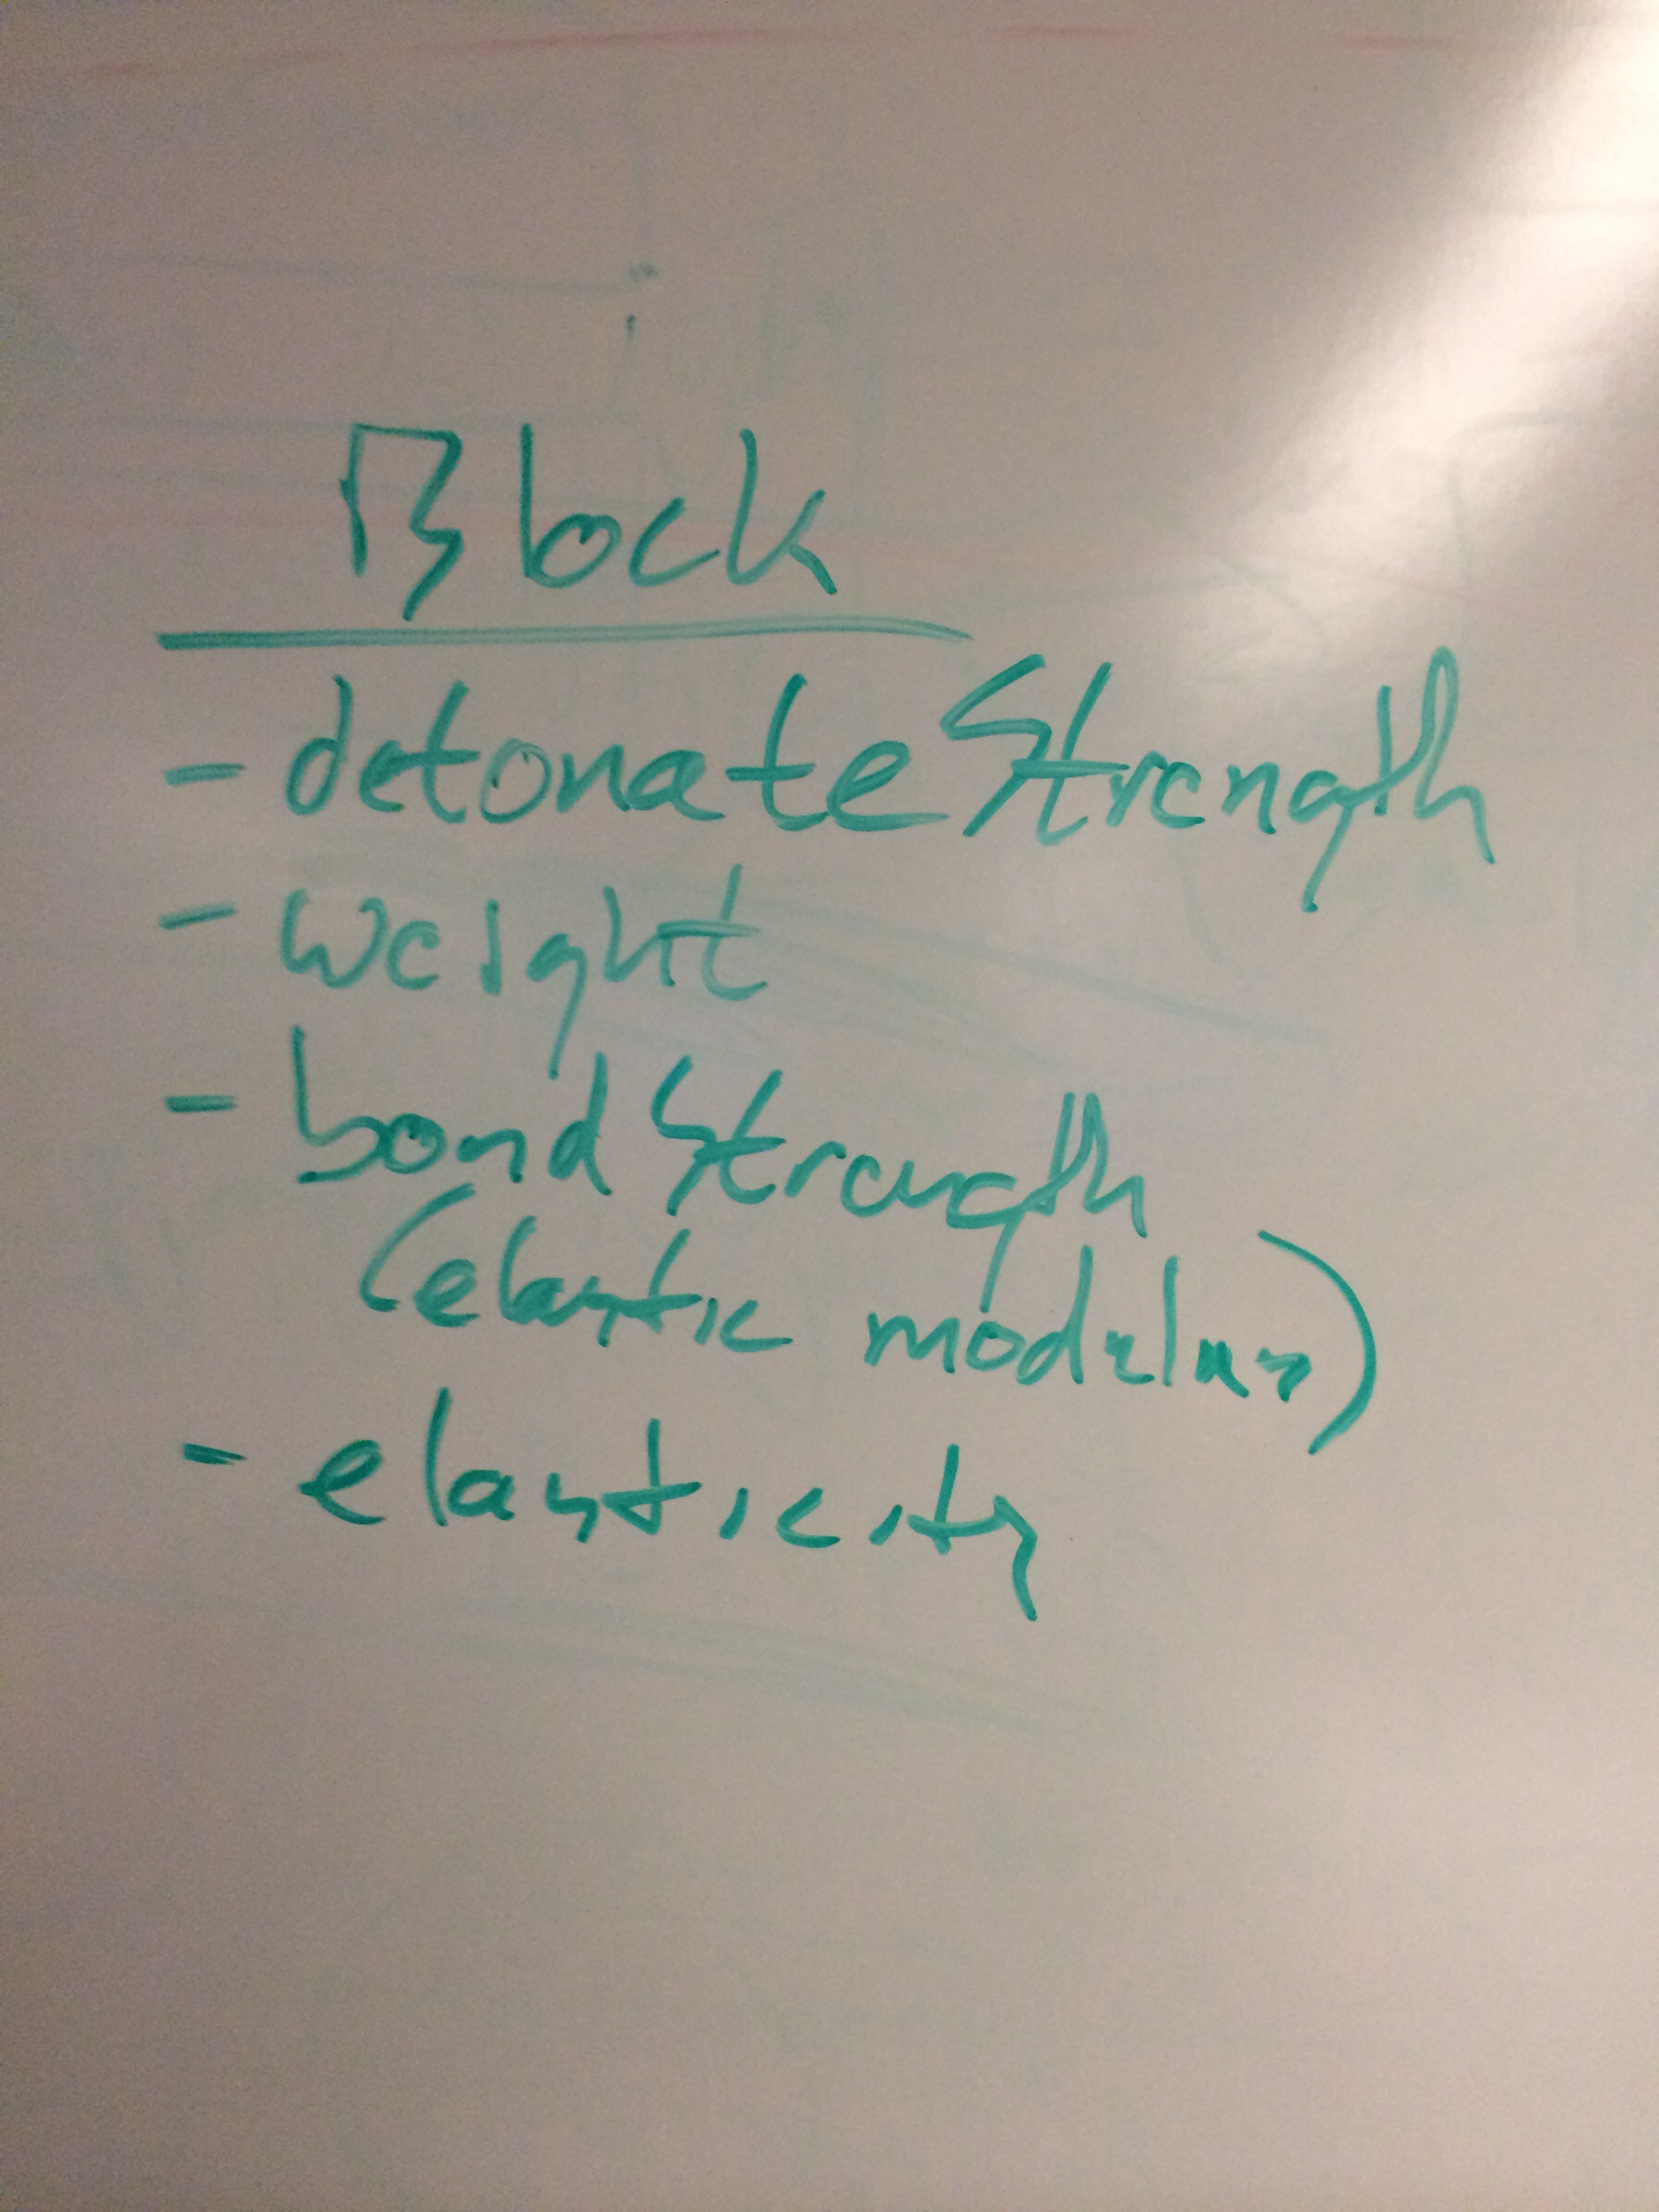 Block
- detonateStrength
- weight
- bondStrength
(elastic modulus)
- elasticity